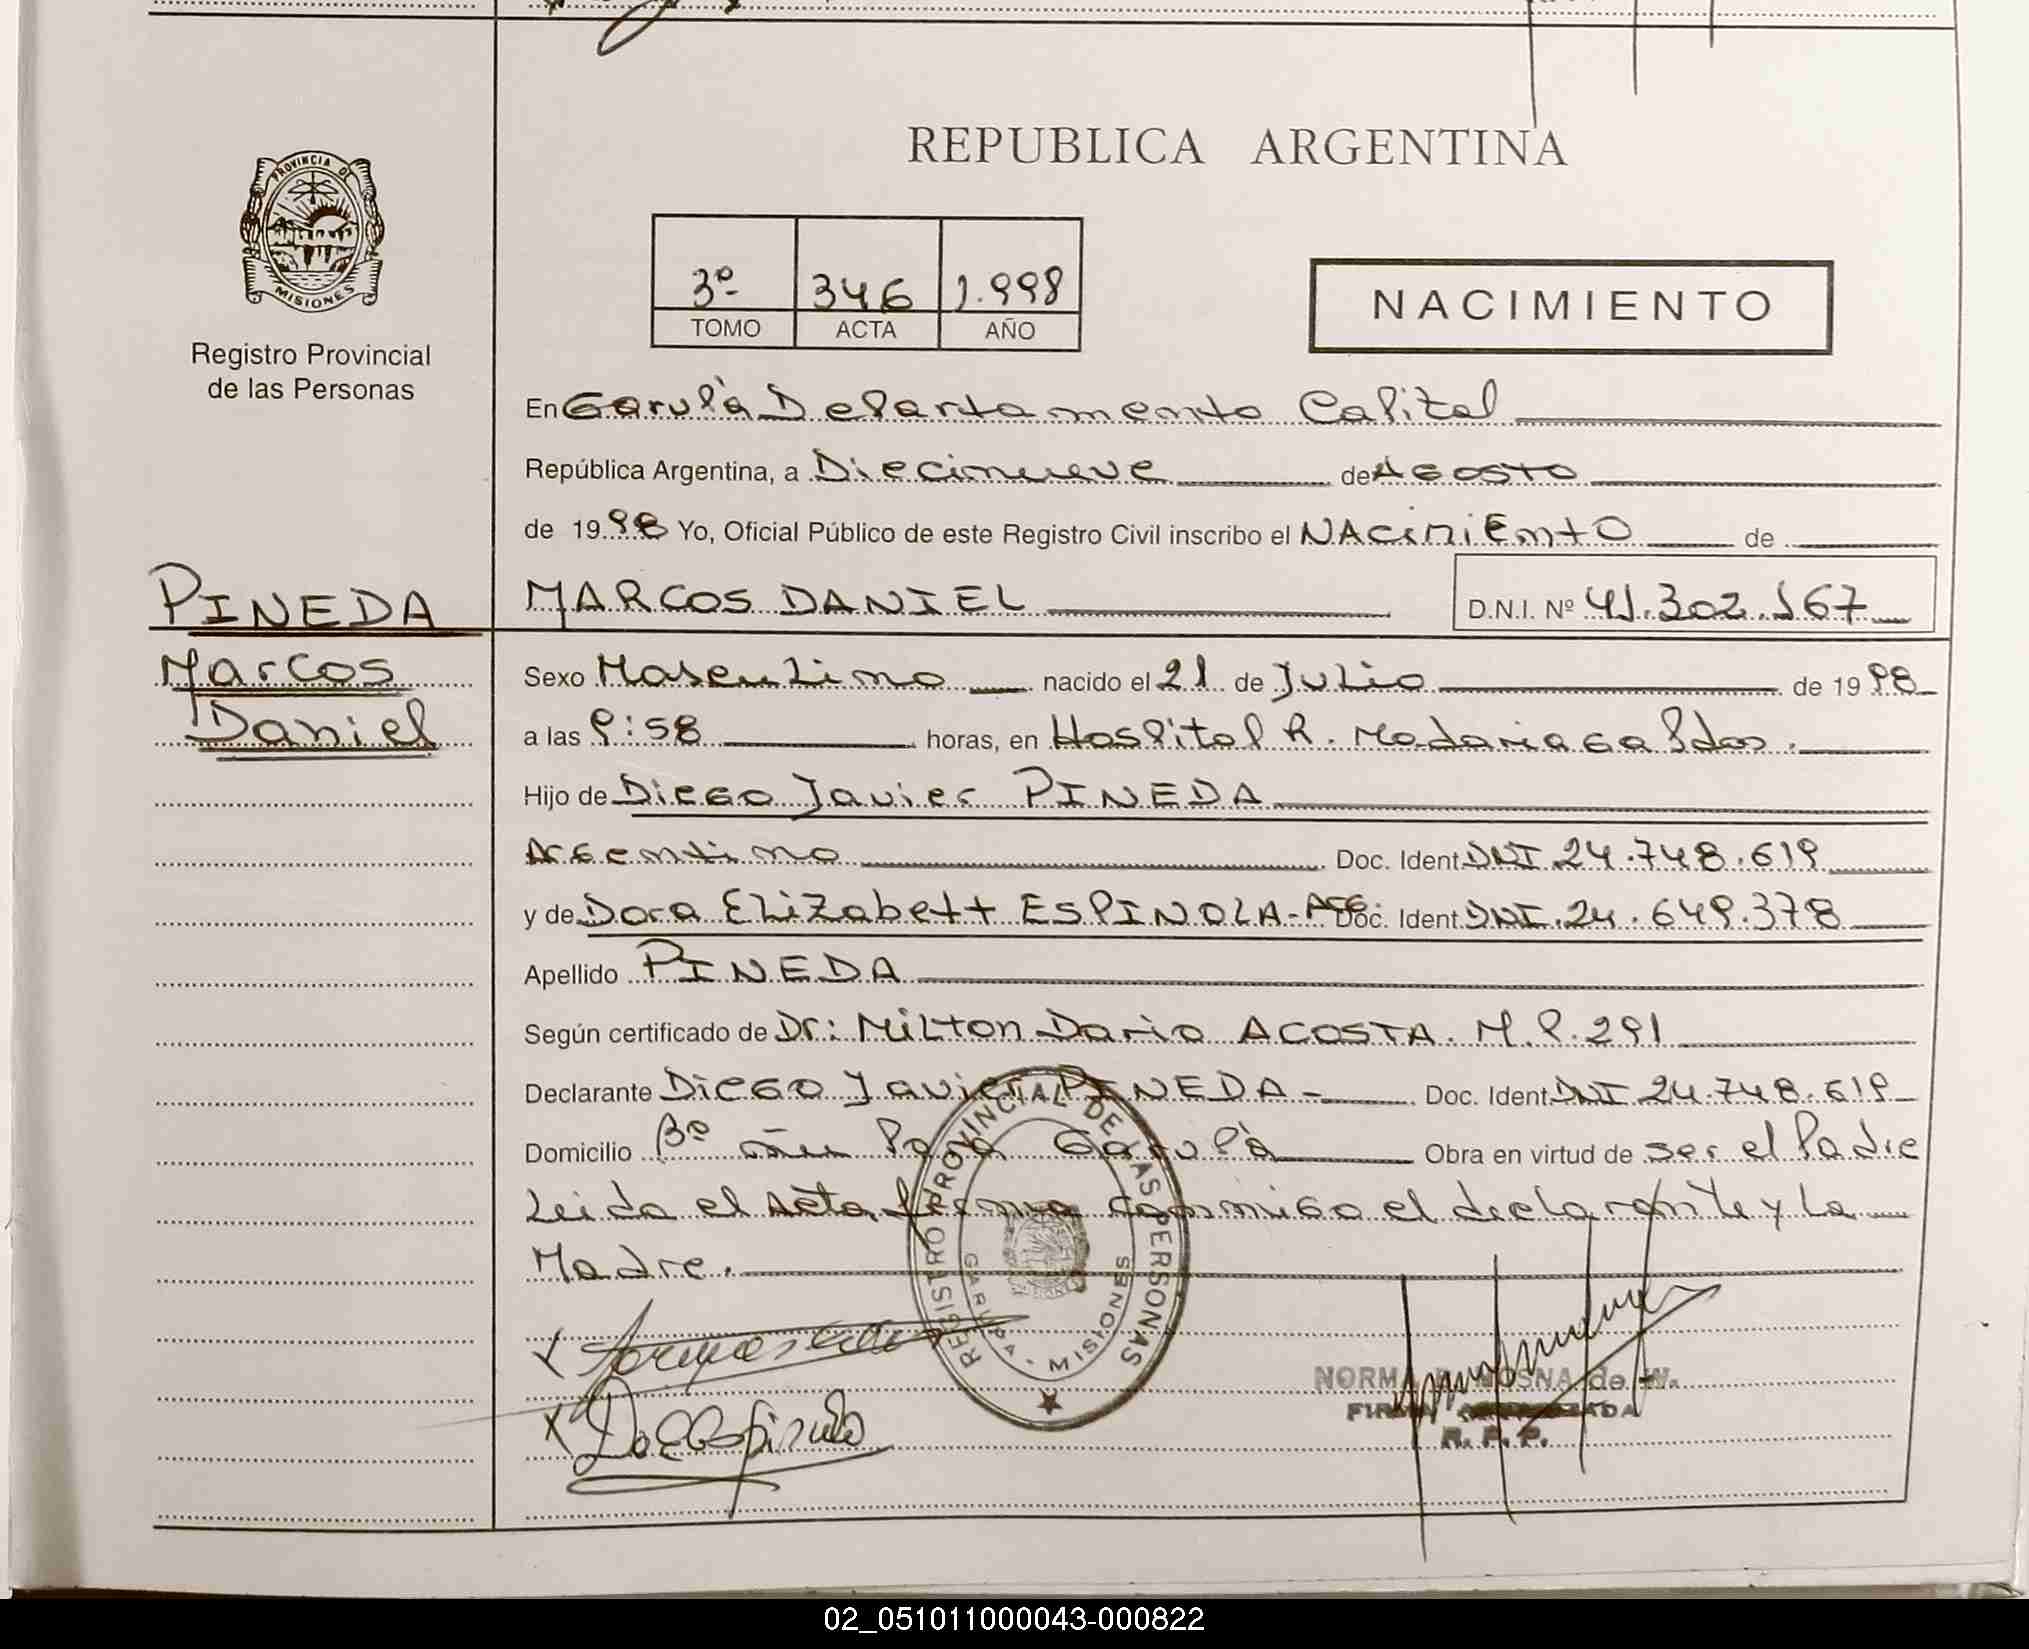 REPUBLICA ARGENTINA
PROVINCIA DE
MISIONES
Registro Provincial
de las Personas
3º 346 1.998
TOMO ACTA AÑO
NACIMIENTO
En Garupá Departamento Capital
República Argentina, a Diecinueve de Agosto
de 1998 Yo, Oficial Público de este Registro Civil inscribo el NACIMIENTO de
PINEDA
MARCOS DANIEL D.N.I. Nº 41.302.167
Marcos
Daniel
Sexo Masculino nacido el 21 de Julio de 1998
a las 9:58 horas, en Hospital R. Madariaga Pdas.
Hijo de Diego Javier PINEDA
Argentino Doc. Ident. DNI 24.748.619
y de Dora Elizabett ESPINOLA - Arg. Doc. Ident. DNI. 24.649.378
Apellido PINEDA
Según certificado de Dr: Milton Dario ACOSTA. M.P. 291
Declarante Diego Javier PINEDA - Doc. Ident. DNI 24.748.619
Domicilio Bº Ñu Pora Garupá Obra en virtud de ser el Padre
Leida el acta, firma conmigo el declarante y La
Madre.
REGISTRO PROVINCIAL DE LAS PERSONAS
GARUPA - MISIONES
NORMA de W.
FIRMA AUTORIZADA
R. P. P.
02_051011000043-000822